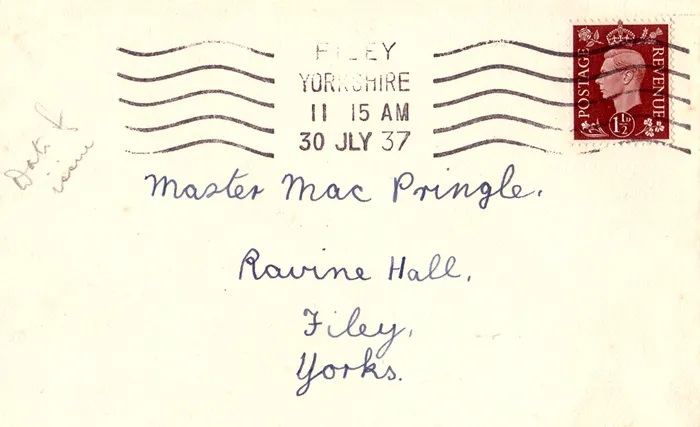 FILEY
YORKSHIRE
11 15 AM
30 JLY 37
POSTAGE
REVENUE
1½D
Date of
issue
Master Mac Pringle.
Ravine Hall.
Filey,
Yorks.